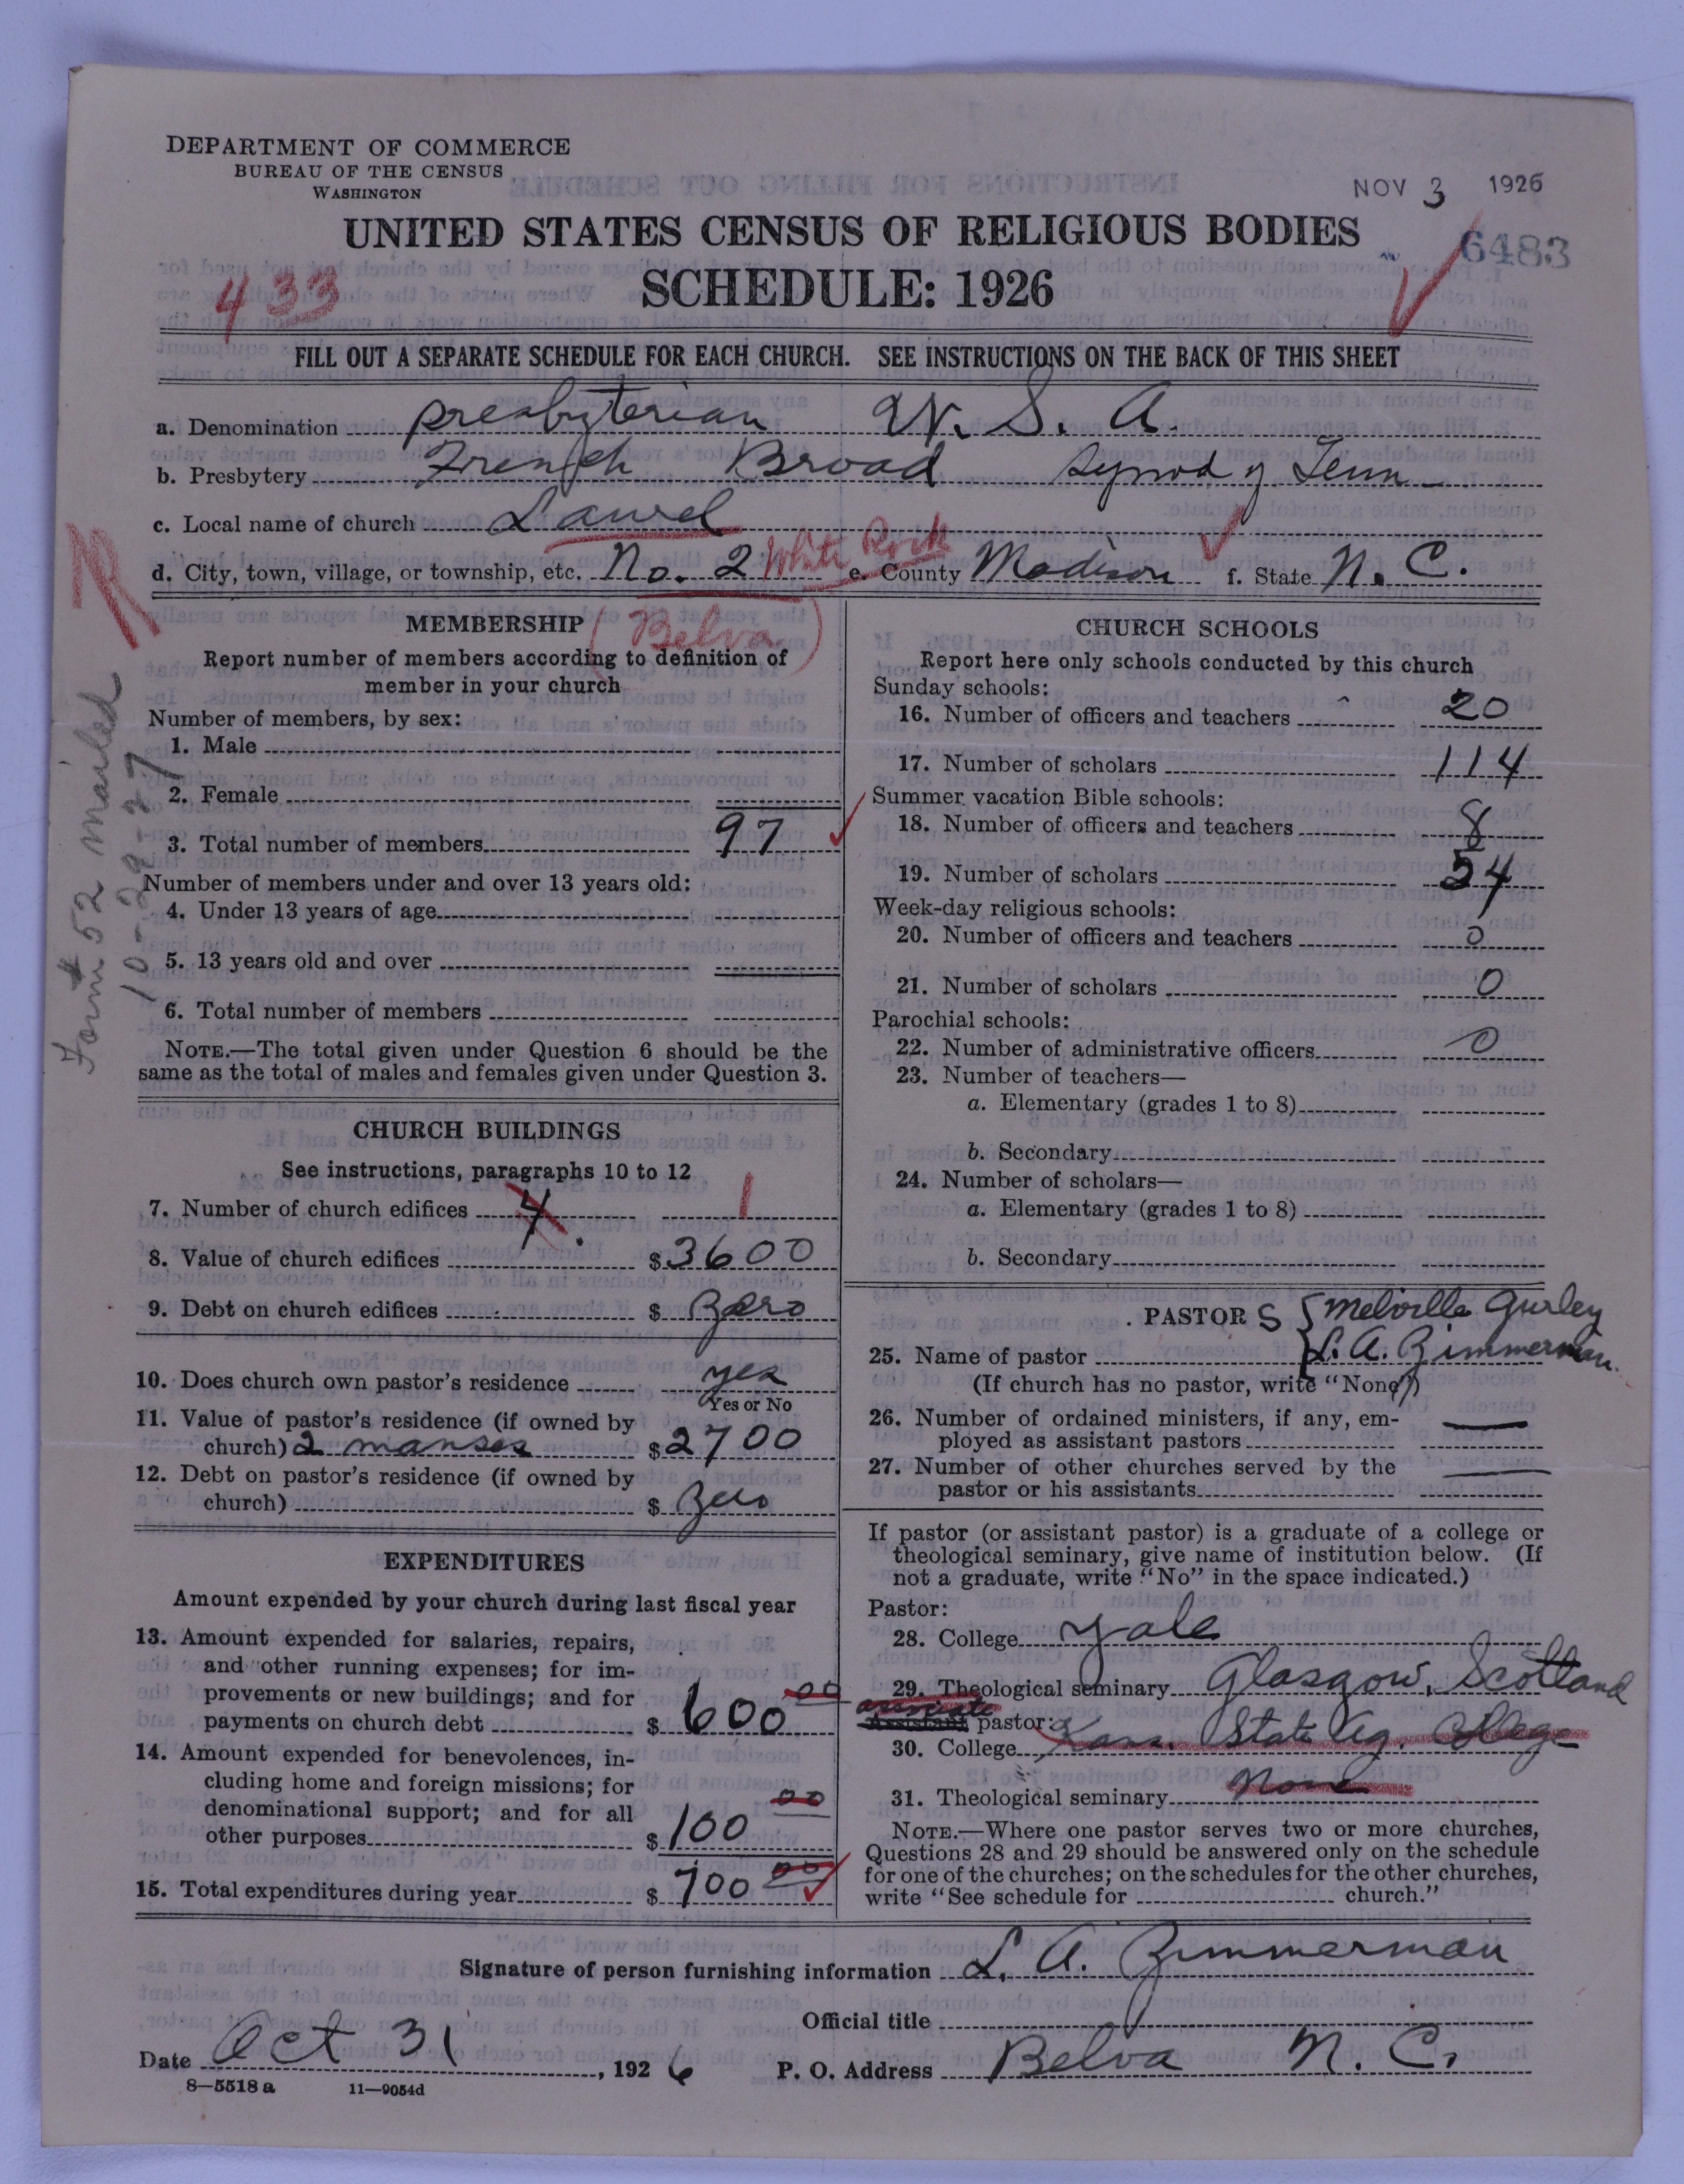 DEPARTMENT OF COMMERCE
BUREAU OF THE CENSUS
WASHINGTON
NOV 3 1926
UNITED STATES CENSUS OF RELIGIOUS BODIES
6483
433
SCHEDULE: 1926
FILL OUT A SEPARATE SCHEDULE FOR EACH CHURCH. SEE INSTRUCTIONS ON THE BACK OF THIS SHEET
a. Denomination presbyterian U. S. A.
b. Presbytery French Broad synod of Tenn
c. Local name of church Laurel
d. City, town, village, or township, etc. No. 2 White Rock e. County Madison f. State N. C.
(Belva)
R
Form #52 mailed
10-29-27
MEMBERSHIP
Report number of members according to definition of
member in your church
Number of members, by sex:
1. Male
2. Female
3. Total number of members 97
Number of members under and over 13 years old:
4. Under 13 years of age
5. 13 years old and over
6. Total number of members
NOTE.—The total given under Question 6 should be the
same as the total of males and females given under Question 3.
CHURCH BUILDINGS
See instructions, paragraphs 10 to 12
7. Number of church edifices 4 1
8. Value of church edifices $3600
9. Debt on church edifices $ Zero
10. Does church own pastor's residence yes
Yes or No
11. Value of pastor's residence (if owned by
church) 2 manses $2700
12. Debt on pastor's residence (if owned by
church) $ Zero
EXPENDITURES
Amount expended by your church during last fiscal year
13. Amount expended for salaries, repairs,
and other running expenses; for im-
provements or new buildings; and for
payments on church debt $ 600 00
14. Amount expended for benevolences, in-
cluding home and foreign missions; for
denominational support; and for all
other purposes $100 00
15. Total expenditures during year $ 700 00
CHURCH SCHOOLS
Report here only schools conducted by this church
Sunday schools:
16. Number of officers and teachers 20
17. Number of scholars 114
Summer vacation Bible schools:
18. Number of officers and teachers 8
19. Number of scholars 54
Week-day religious schools:
20. Number of officers and teachers 0
21. Number of scholars 0
Parochial schools:
22. Number of administrative officers 0
23. Number of teachers—
a. Elementary (grades 1 to 8)
b. Secondary
24. Number of scholars—
a. Elementary (grades 1 to 8)
b. Secondary
PASTOR S { Melville Gurley
25. Name of pastor L. A. Zimmerman
(If church has no pastor, write "None")
26. Number of ordained ministers, if any, em-
ployed as assistant pastors —
27. Number of other churches served by the
pastor or his assistants —
If pastor (or assistant pastor) is a graduate of a college or
theological seminary, give name of institution below. (If
not a graduate, write "No" in the space indicated.)
Pastor:
28. College Yale
29. Theological seminary Glasgow, Scotland
associate
Assistant pastor:
30. College Kans. State Ag. College
31. Theological seminary None
NOTE.—Where one pastor serves two or more churches,
Questions 28 and 29 should be answered only on the schedule
for one of the churches; on the schedules for the other churches,
write "See schedule for church."
Signature of person furnishing information L. A. Zimmerman
Official title
Date Oct 31, 1926 P. O. Address Belva N. C.
8—5518 a 11—9054d